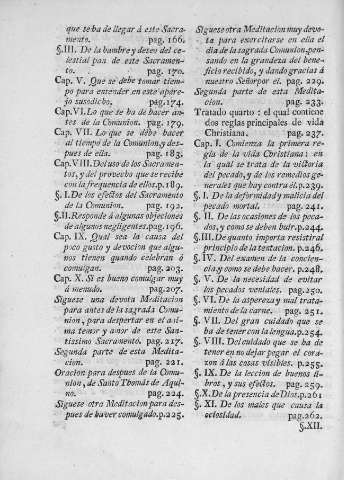 que se ha de llegar á este Sacra-
mento. pag. 166.
§.III. De la hambre y deseo del ce-
lestial pan de este Sacramen-
to. pag. 170.
Cap. V. Que se debe tomar tiem-
po para entender en este apare-
jo susodicho. pag.174.
Cap.VI. Lo que se ha de hacer an-
tes de la Comunion. pag. 179.
Cap. VII. Lo que se debe hacer
al tiempo de la Comunion,y des-
pues de ella. pag. 183.
Cap.VIII. Del uso de los Sacramen-
tos, y del provecho que se recibe
con la frequencia de ellos.p.189.
§. I. De los efectos del Sacramento
de la Comunion. pag. 192.
§.II. Responde á algunas objeciones
de algunos negligentes.pag.196.
Cap. IX. Qual sea la causa del
poco gusto y devocion que algu-
nos tienen quando celebran ó
comulgan. pag. 203.
Cap. X. Si es bueno comulgar muy
á menudo. pag.207.
Siguese una devota Meditacion
para antes de la sagrada Comu-
nion, para despertar en el ani-
ma temor y amor de este San-
tissimo Sacramento. pag. 217.
Segunda parte de esta Medita-
cion. pag. 221.
Oracion para despues de la Comu-
nion, de Santo Thomás de Aqui-
no. pag. 224.
Siguese otra Meditacion para des-
pues de haver comulgado.p.225.
Siguese otra Meditacion muy devo-
ta para exercitarse en ella el
dia de la sagrada Comunion,pen-
sando en la grandeza del bene-
ficio recibido, y dando gracias á
nuestro Señor por el. pag. 229.
Segunda parte de esta Medita-
cion. pag. 233.
Tratado quarto: el qual contiene
dos reglas principales de vida
Christiana. pag. 237.
Cap. I. Comienza la primera re-
gla de la vida Christiana: en
la qual se trata de la victoria
del pecado, y de los remedios ge-
nerales que hay contra él.p.239.
§. I. De la deformidad y malicia del
pecado mortal. pag. 241.
§. II. De las ocasiones de los peca-
dos, y como se deben huir.p.244.
§.III. De quanto importa resistir al
principio de la tentacion.p.246.
§. IV. Del examen de la concien-
cia,y como se debe hacer. p.248.
§. V. De la necesidad de evitar
los pecados veniales. pag. 250.
§. VI. De la aspereza y mal trata-
miento de la carne. pag. 251.
§. VII. Del gran cuidado que se
ha de tener con la lengua.p.254.
§. VIII. Del cuidado que se ha de
tener en no dejar pegar el cora-
zon á las cosas visibles. p.255.
§. IX. De la leccion de buenos li-
bros, y sus efectos. pag. 259.
§.X. De la presencia de Dios.p.261
§. XI. De los males que causa la
ociosidad. pag.262.
§.XII.